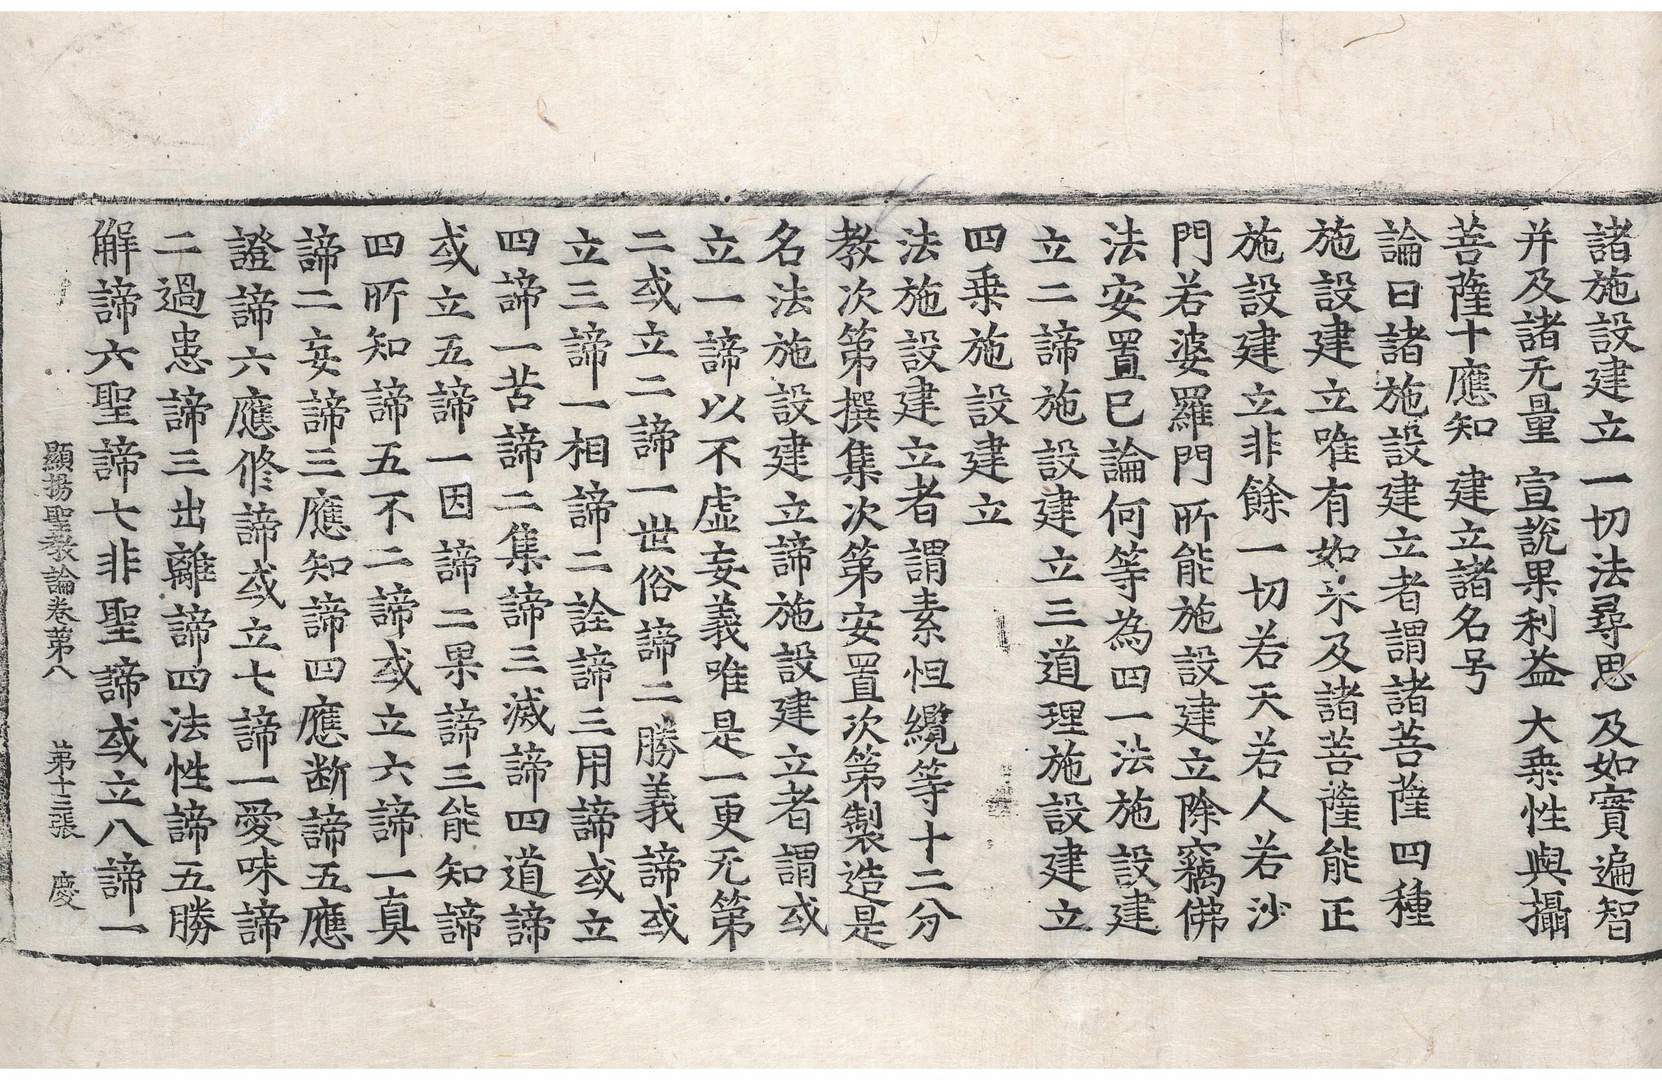 諸施設建立 一切法尋思 及如實遍智
并及諸无量 宣說果利益 大乗性與攝
菩薩十應知 建立諸名号
論曰諸施設建立者謂諸菩薩四種
施設建立唯有如来及諸菩薩能正
施設建立非餘一切若天若人若沙
門若婆羅門所能施設建立除竊佛
法安置已論何等為四一法施設建
立二諦施設建立三道理施設建立
四乗施設建立
法施設建立者謂素怛纜等十二分
教次第撰集次第安置次第製造是
名法施設建立諦施設建立者謂或
立一諦以不虛妄義唯是一更无第
二或立二諦一世俗諦二勝義諦或
立三諦一相諦二詮諦三用諦或立
四諦一苦諦二集諦三滅諦四道諦
或立五諦一因諦二果諦三能知諦
四所知諦五不二諦或立六諦一真
諦二妄諦三應知諦四應断諦五應
證諦六應修諦或立七諦一愛味諦
二過患諦三出離諦四法性諦五勝
解諦六聖諦七非聖諦或立八諦一
顯揚聖教論卷第八 第十三張 慶